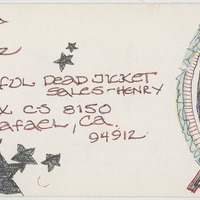 FUL DEAD TICKET
SALES-HENRY
X CS 8150
AFAEL, CA.
94912